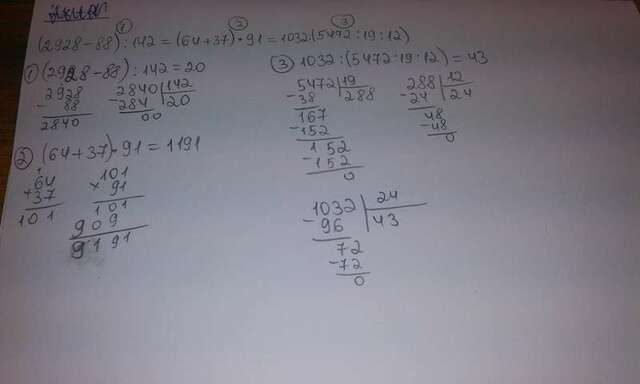 ① ③ ③
(2928-88):142=(64+37)•91=1032:(5472:19:12)
① (2928-88):142=20
2928
- 88
2840
2840 142
- 284 20
00
② (64+37)•91=1191
1
64
+ 37
101
101
× 91
101
909
9191
③ 1032:(5472:19:12)=43
5472 19
- 38 288
167
- 152
152
- 152
0
288 12
- 24 24
48
- 48
0
1032 24
- 96 43
72
- 72
0